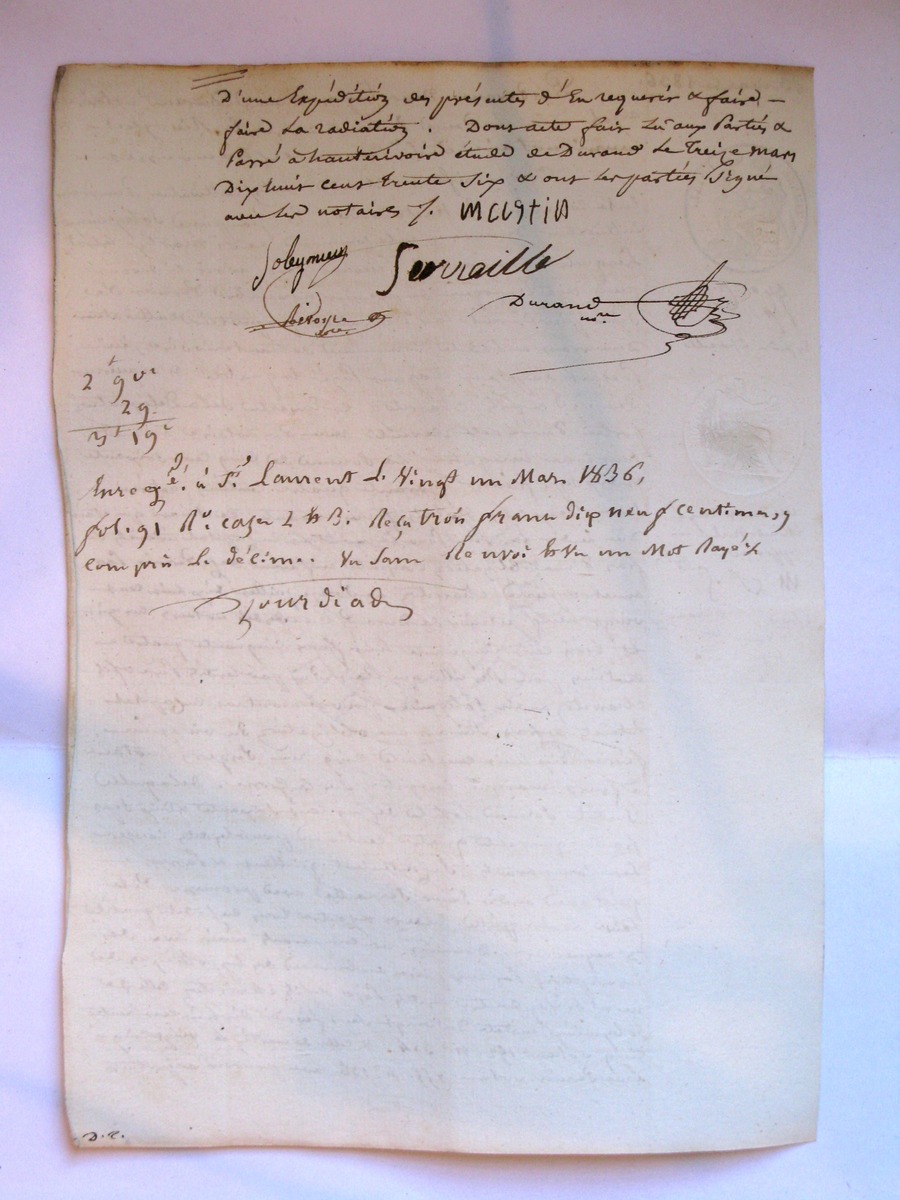 D'une Expédition des présentes d'En requerir & faire –
faire La radiation. Dont acte fait Lu aux Parties &
Passé à hauterivoire étude de Durand Le Treize mars
Dix huit cent trente Six & ont les parties Signé
avec les notaires /.
martin
Soleymieu Serraille
Durand
nre
2f 90c
29
3f 19c
Enregé. à St. Laurent Le Vingt un Mars 1836,
fol. 91 Ro. cases 2 & 3. Reçu trois francs dix neuf centimes, y
compris Le décime. Vu Sans Renvoi & Vu un Mot Rayé
Jourdiad
D. R.